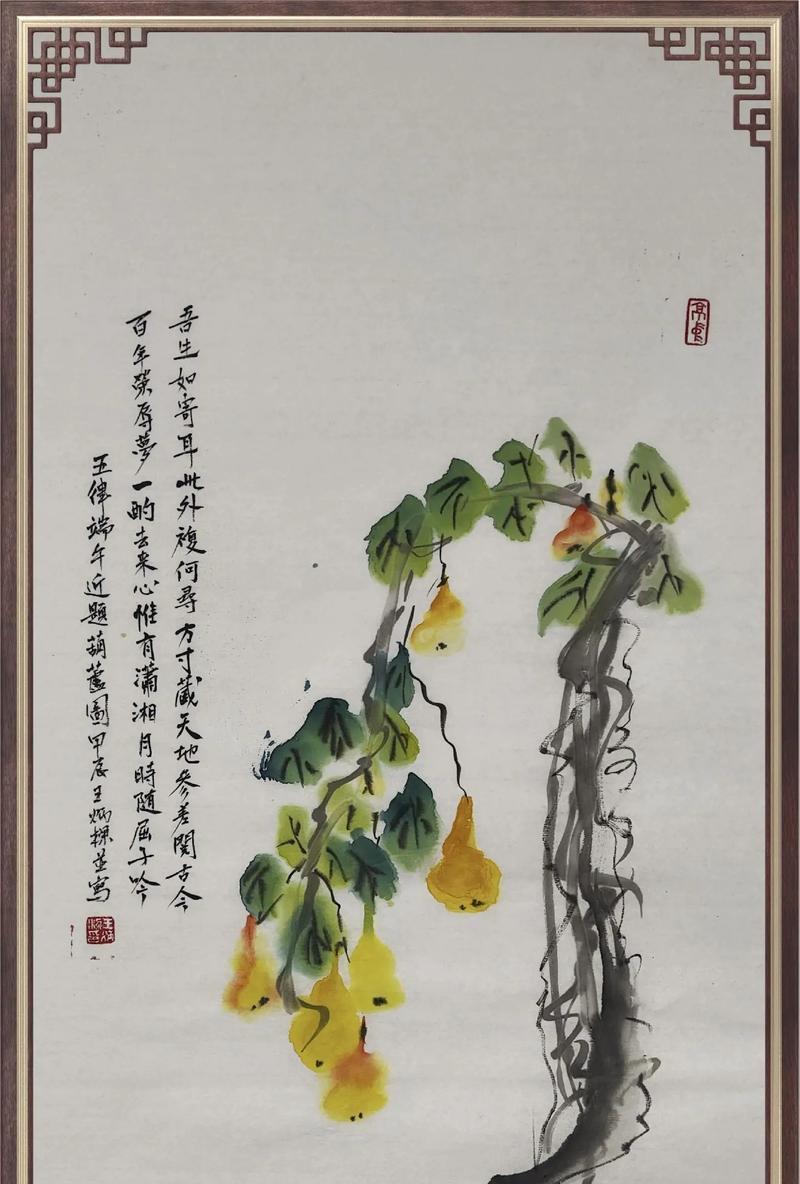 吾生如寄耳此外複何尋方寸藏天地參差閱古今
百年榮辱夢一酌去来心惟有瀟湘月時随屈子吟
五律端午近題葫蘆圖甲辰王炳棟並寫